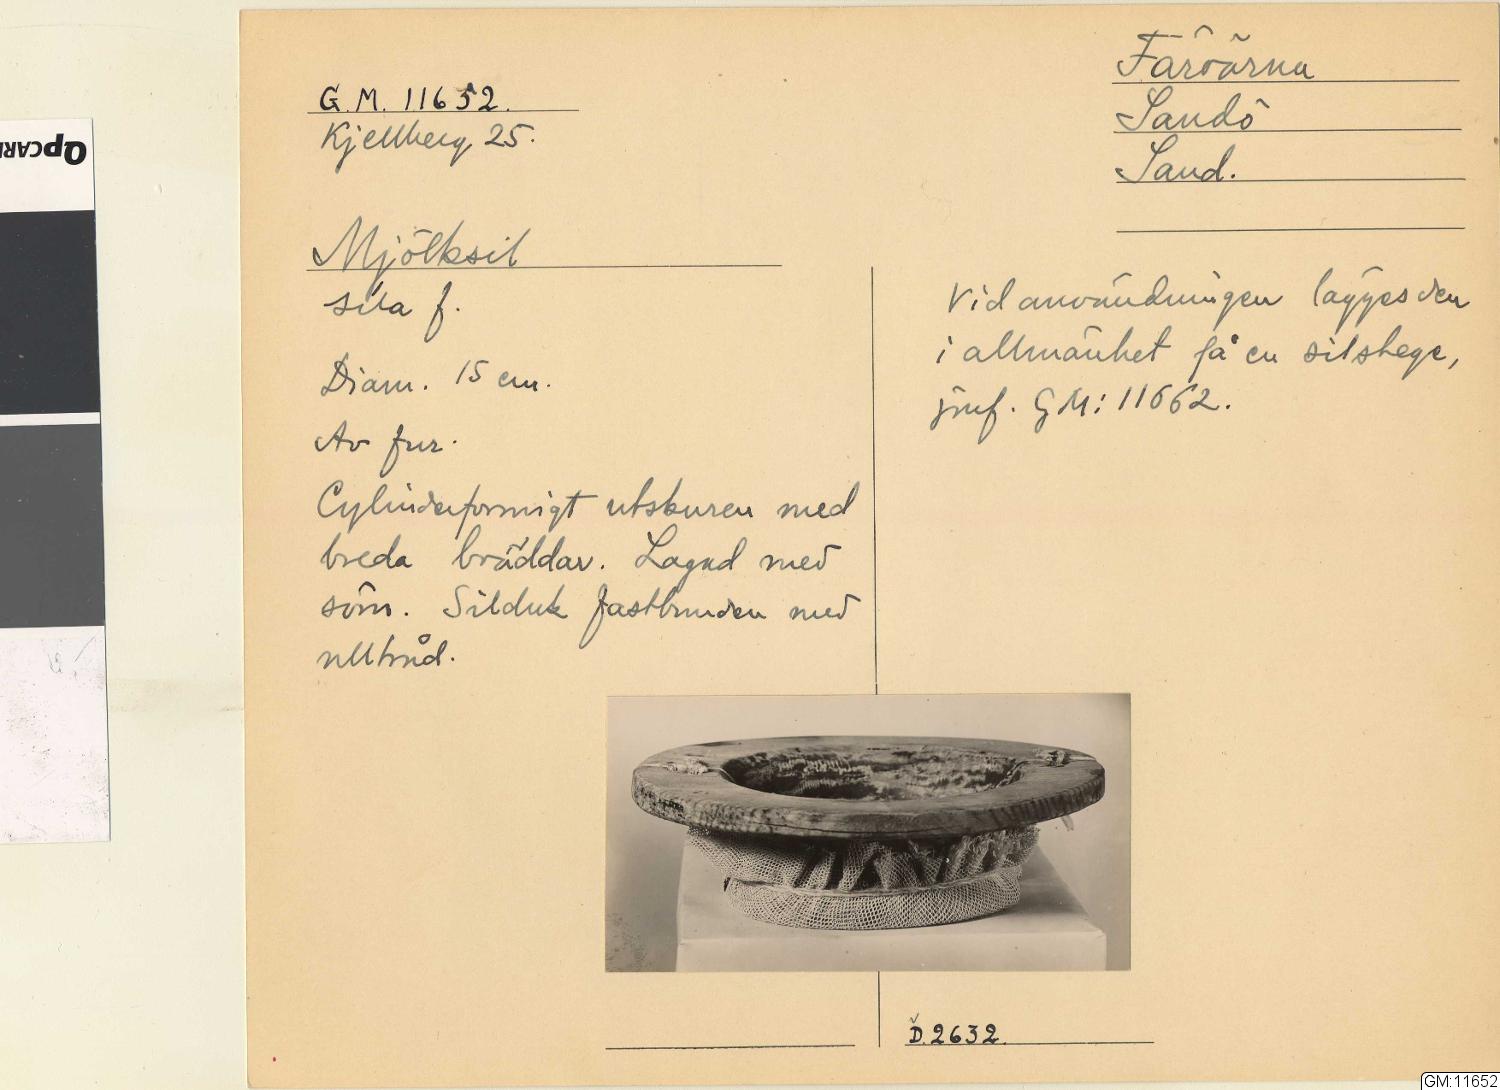 QPCARD
G.M. 11652.
Kjellberg 25.
Färöarna
Sandö
Sand.
Mjölksil
síla f.
Diam. 15 cm.
Av fur.
Cylinderformigt utskuren med
breda bräddar. Lagad med
söm. Silduk fastbunden med
ulltråd.
Vid användningen lägges den
i allmänhet på en silstege,
jmf. GM: 11662.
D.2632.
GM:11652